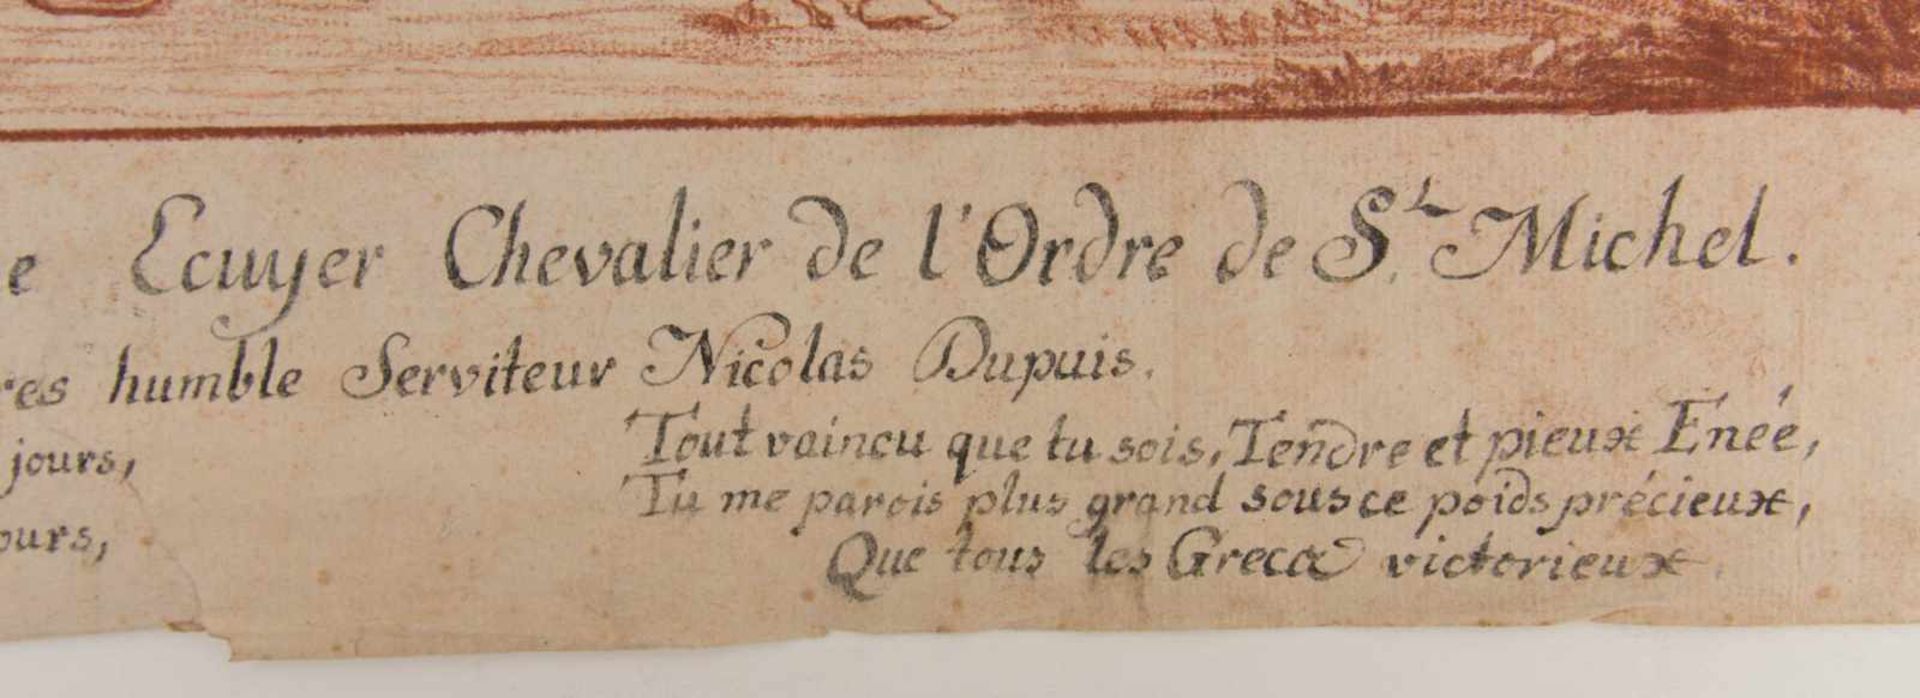 e Ecuyer Chevalier de l'Ordre de St. Michel.
res humble Serviteur Nicolas Dupuis.
jours,
Tout vaincu que tu sois, Tendre et pieux Enée,
Tu me parois plus grand sous ce poids précieux,
ours,
Que tous les Grecs victorieux.